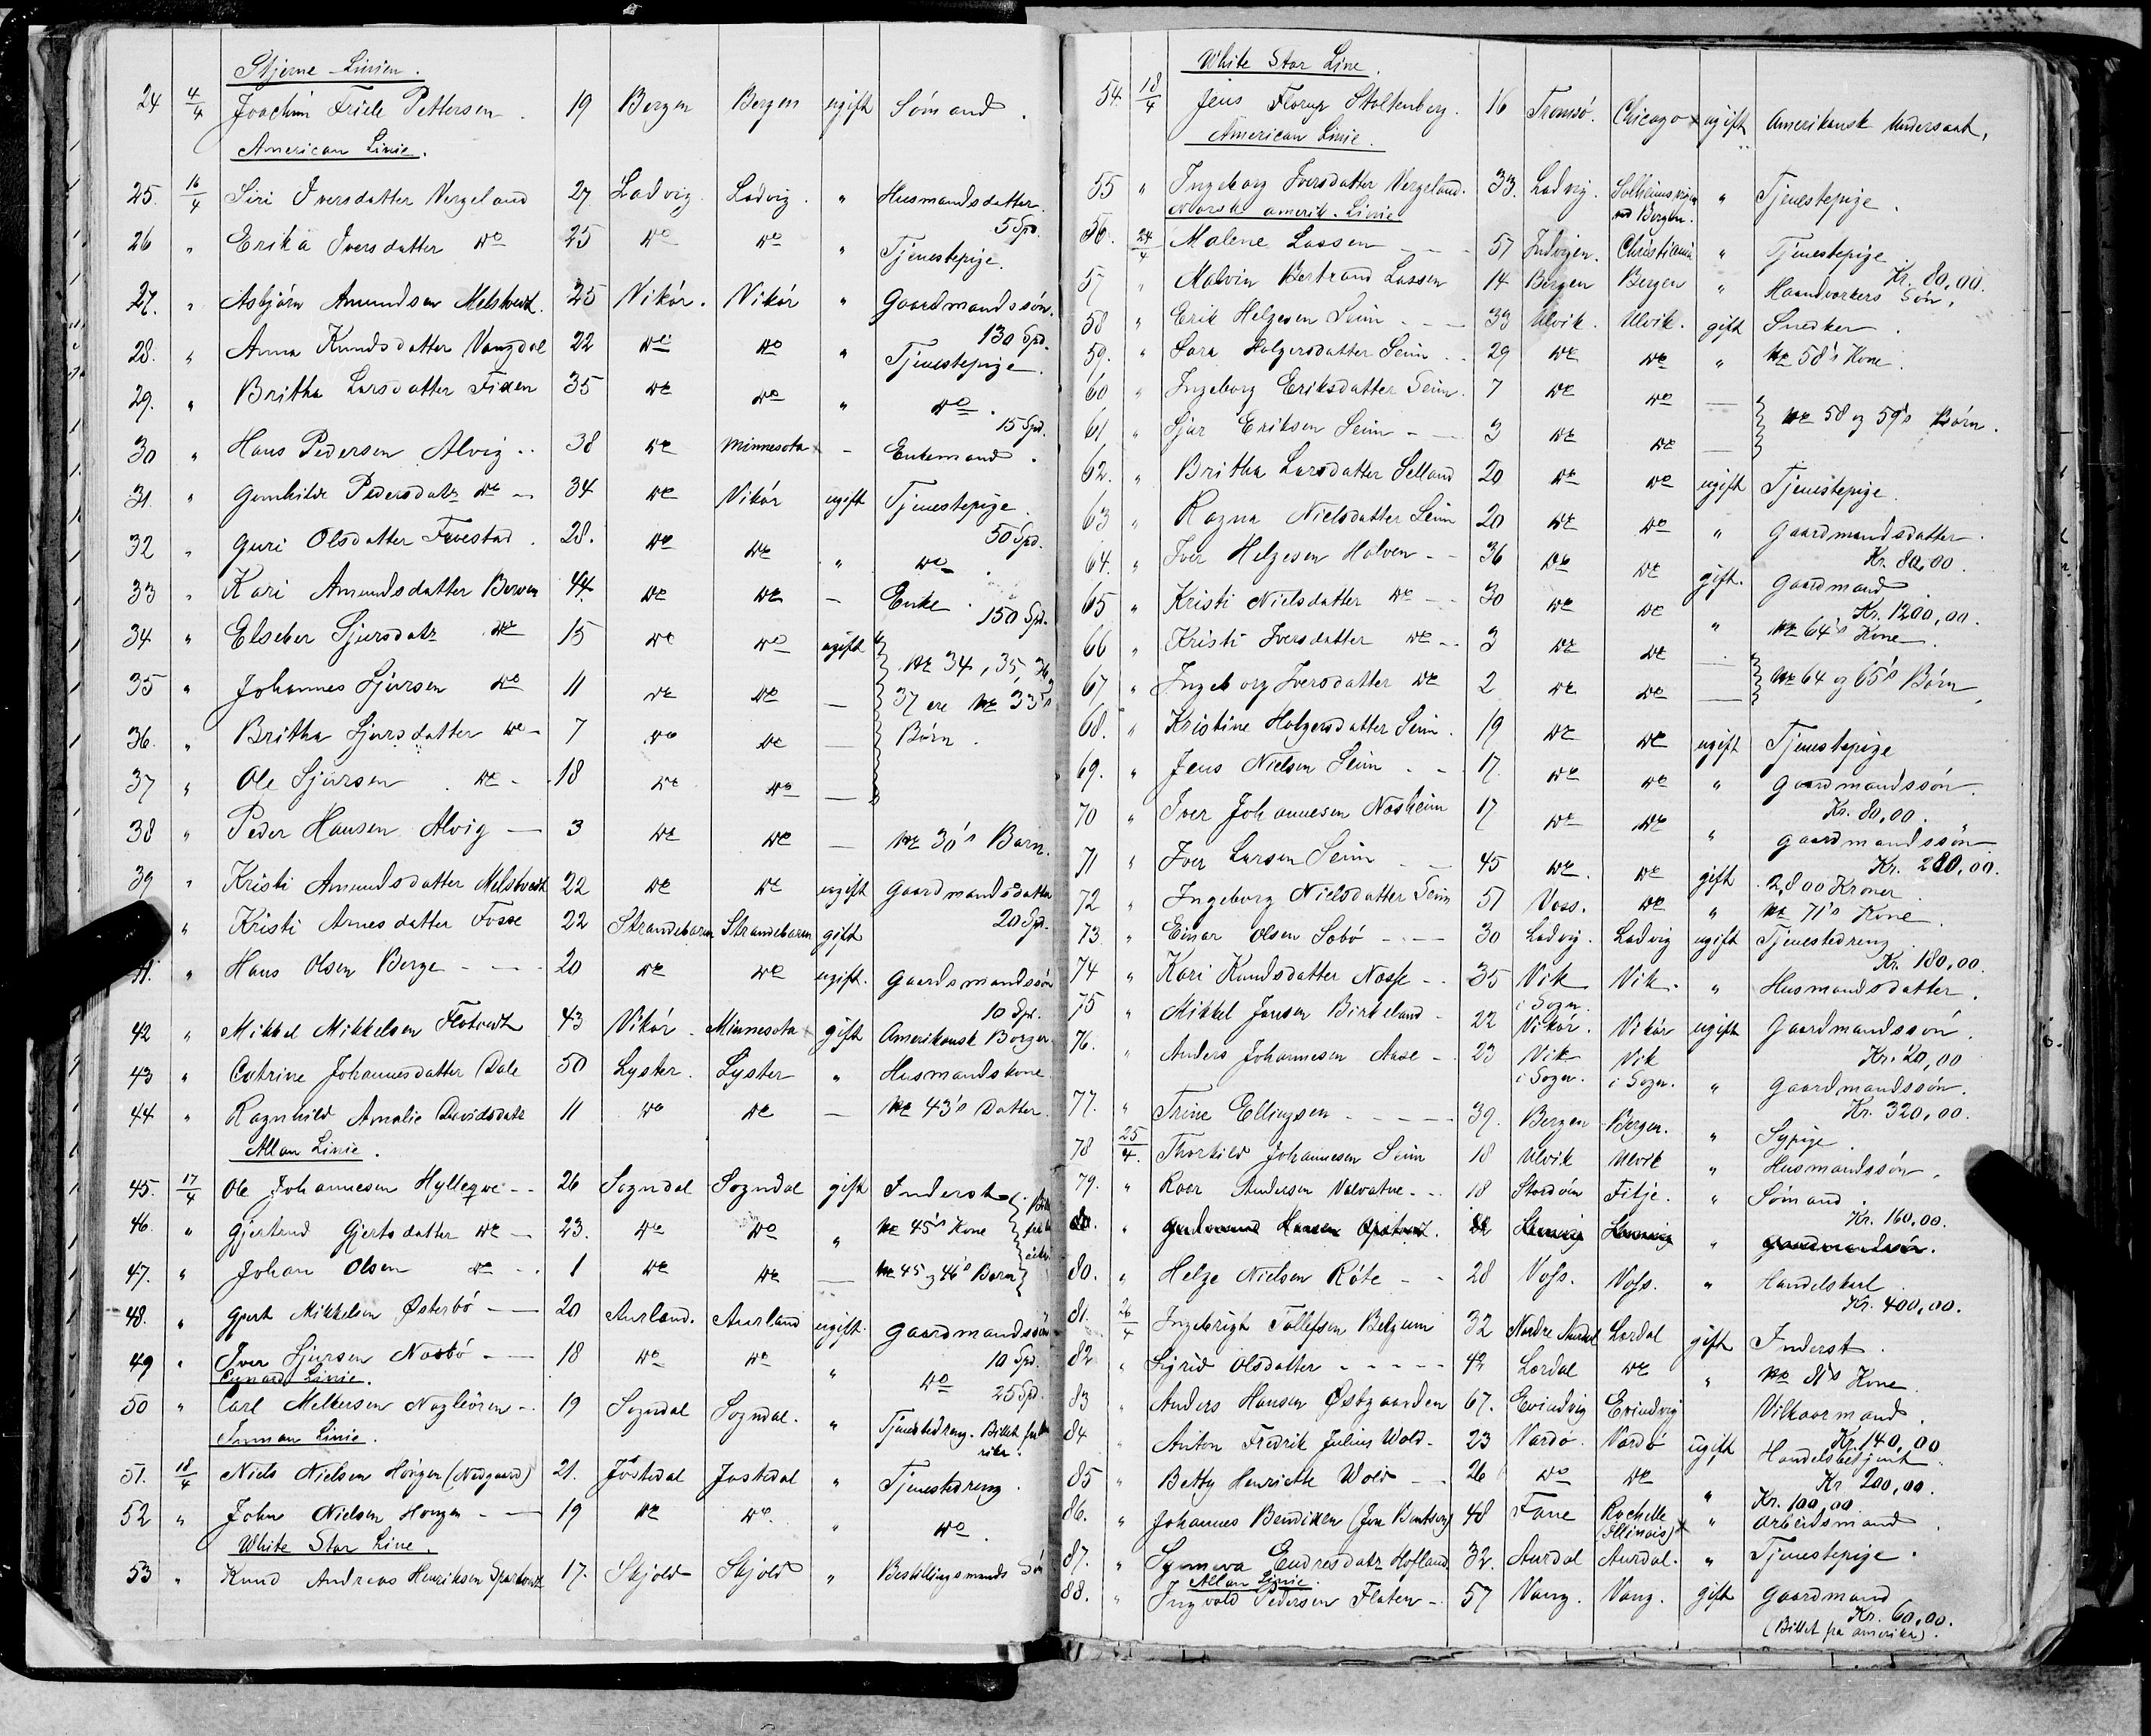 Stjerne-Linien.
24 4/4 Joachim Friele Pettersen. 19 Bergen Bergen ugift Sømand.
American Linie.
25. 16/4 Siri Iversdatter Vergeland 27. Ladvig. Ladvig. " Husmandsdatter.
5 Spd.
26 " Erika Iversdatter do 25 do do " Tjenestepige.
27. " Asbjørn Amundsen Melstvedt. 25 Vikør. Vikør " Gaardmandssøn.
130 Spd.
28. " Anna Knudsdatter Vangdal 22 do do " Tjenestepige.
29. " Britha Larsdatter Fixen 35 do do " do.
15 Spd.
30 " Hans Pedersen Alvig.. 38 do Minnesota x - Enkemand.
31. " Gunhilde Pedersdatr do - 34 do Vikør ugift Tjenestepige.
50 Spd.
32 " Guri Olsdatter Tveestad. 28. do do " do.
33 " Kari Amundsdatter Berven 44. do do - Enke.
150 Spd.
34 " Elseber Sjursdatr do 15 do do ugift No 34, 35, 36,
35 " Johannes Sjursen do 11 do do - 37 ere No 33's
36. " Britha Sjursdatter do - 7 do do - Børn.
37 " Ole Sjursen do - 18 do do -
38 " Peder Hansen Alvig - 3 do do - No 30's Barn.
39 " Kristi Amundsdatter Melstvedt 22 do do ugift Gaardmandsdatter
20 Spd.
" Kristi Arnesdatter Fosse 22 Strandebarm Strandebarm gift
41. " Hans Olsen Berge - - - 20 do do ugift. Gaardsmandssøn
10 Spd.
42 " Mikkel Mikkelsen Flotvedt 43 Vikør. Minnesota x gift Amerikansk Borger.
43 " Cathrine Johannesdatter Dale 50 Lyster. Lyster " Husmandskone
44 " Ragnhild Amalie Davidsdatr 11 do do - No 43's Datter.
Allan Linie.
45. 17/4 Ole Johannesen Hylleqve - - 26 Sogndal Sogndal gift Inderst
46. " Gjertrud Gjertsdatter do - 23. do do " No 45's Kone
47. " Johan Olsen do - 1 do do - No 45 og 46's Barn
48. " Gjert Mikkelsen Østerbø - - 20 Aurland. Aurland ugift. Gaardmandssøn
10 Spd.
49 " Iver Sjursen Nasbø - - 18 do do " do 25 Spd.
Cunard Linie.
50 " Carl Melkersen Nagløren - . 19 Sogndal Sogndal. " Tjenestedreng. Billet fra
Inman Linie.
51. 18/4 Niels Nielsen Høigen (Nedgaard) 21. Jostedal Jostedal " Tjenestedreng.
52 " John Nielsen Hongen - - 19 do do " do.
White Star Line.
53 " Knud Andreas Henriksen 17. Skjold Skjold " Bestillingsmands Søn
White Star Line.
54. 18/4 Jens Florup Stoltenberg. 16 Tromsø. Chicago x ugift Amerikansk Undersaat.
American Linie.
55 " Ingeborg Iversdatter Vergeland. 33. Ladvig. Solheimsvigen " Tjenestepige.
ved Bergen.
Norsk amerik. Linie
56. 24/4 Malene Lassen - - - 57 Indvigen. Christiania " Tjenestepige
Kr. 80,00.
57 " Malvin Bertrand Lassen 14 Bergen Bergen " Haandverkers Søn.
58 " Erik Helgesen Seim - - 33 Ulvik. Ulvik. gift Snedker.
59. " Sara Holgersdatter Seim - . 29 do do " No 58's Kone.
60 " Ingeborg Eriksdatter Seim. 7 do do - No 58 og 59's Børn.
61 " Sjur Eriksen Seim - - 3 do do -
62. " Britha Larsdatter Selland 20 do do ugift Tjenestepige.
63 " Ragna Nielsdatter Seim 20 do do " Gaardmandsdatter.
Kr. 80,00.
64. " Iver Helgesen Halven - - 36 do do gift. Gaardmand
Kr. 1200,00.
65 " Kristi Nielsdatter do - - 30 do do " No 64's Kone.
66 " Kristi Iversdatter do - . 3 do do - No 64 og 65's Børn,
67 " Ingeborg Iversdatter do 2 do do -
68. " Kristine Holgersdatter Seim. 19 do do ugift Tjenestepige
69. " Jens Nielsen Seim - - 17. do do " Gaardmandssøn.
Kr. 80,00.
70 " Iver Johannesen Nasheim 17 do do " Gaardmandssøn.
Kr. 280,00.
71 " Iver Larsen Seim - - 45 do do gift 2,800 Kroner
72 " Ingeborg Nielsdatter Seim 51 Voss. do " No 71's Kone.
73. " Einar Olsen Sobø - - - 30 Ladvig. Ladvig ugift Tjenestedreng
Kr. 180,00.
74 " Kari Knudsdatter Nosse - . 35 Vik Vik. " Husmandsdatter.
i Sogn
75 " Mikkel Jonsen Birkeland - 22 Vikør. Vikør ugift Gaardmandssøn.
Kr. 20,00
76. " Anders Johannesen Aase - . 23 Vik Vik " Gaardmandssøn.
i Sogn. i Sogn.
Kr. 320,00.
77. " Trine Ellingsen - - - - 39. Bergen Bergen. " Sypige.
78 25/4. Thorkild Johannesen Seim 18 Ulvik Ulvik " Husmandssøn.
79. " Roar Andersen Valvatne - . 18 Stordøen Fitje. " Sømand.
Kr. 160,00.
80. " Gudmund Hansen Opstvedt. 22 "
80. " Helge Nielsen Røte - - 28 Voss. Voss. " Handelskarl
Kr. 400,00.
81. 26/4 Ingebrigt Tollefsen Belgum 32 Nordre Aurdal Lardal gift Inderst.
82 " Sigrid Olsdatter - - - - - 42 Lardal do " No 81's Kone.
83 " Anders Hansen Østgaarden 67. Evindvig Evindvig Vilkaarmand.
Kr. 140,00
84. " Anton Fredrik Julius Wold - 23 Vardø. Vardø ugift Handelsbetjent.
Kr 200,00.
85 " Betty Henriette Wold - - 26 do do "
Kr. 100,00.
86. " Johannes Bendixen (Jon Bentsen) 48 Fane Rochelle " Arbeidsmand.
(Illinois) x
87. " Synneva Endresdatr Hofland 32. Aurdal Aurdal. " Tjenestepige.
Allan Linie.
88. " Ingvald Pedersen Flaten - . 57 Vang. Vang. gift Gaardmand
Kr. 60,00.
(Billet fra Amerika).